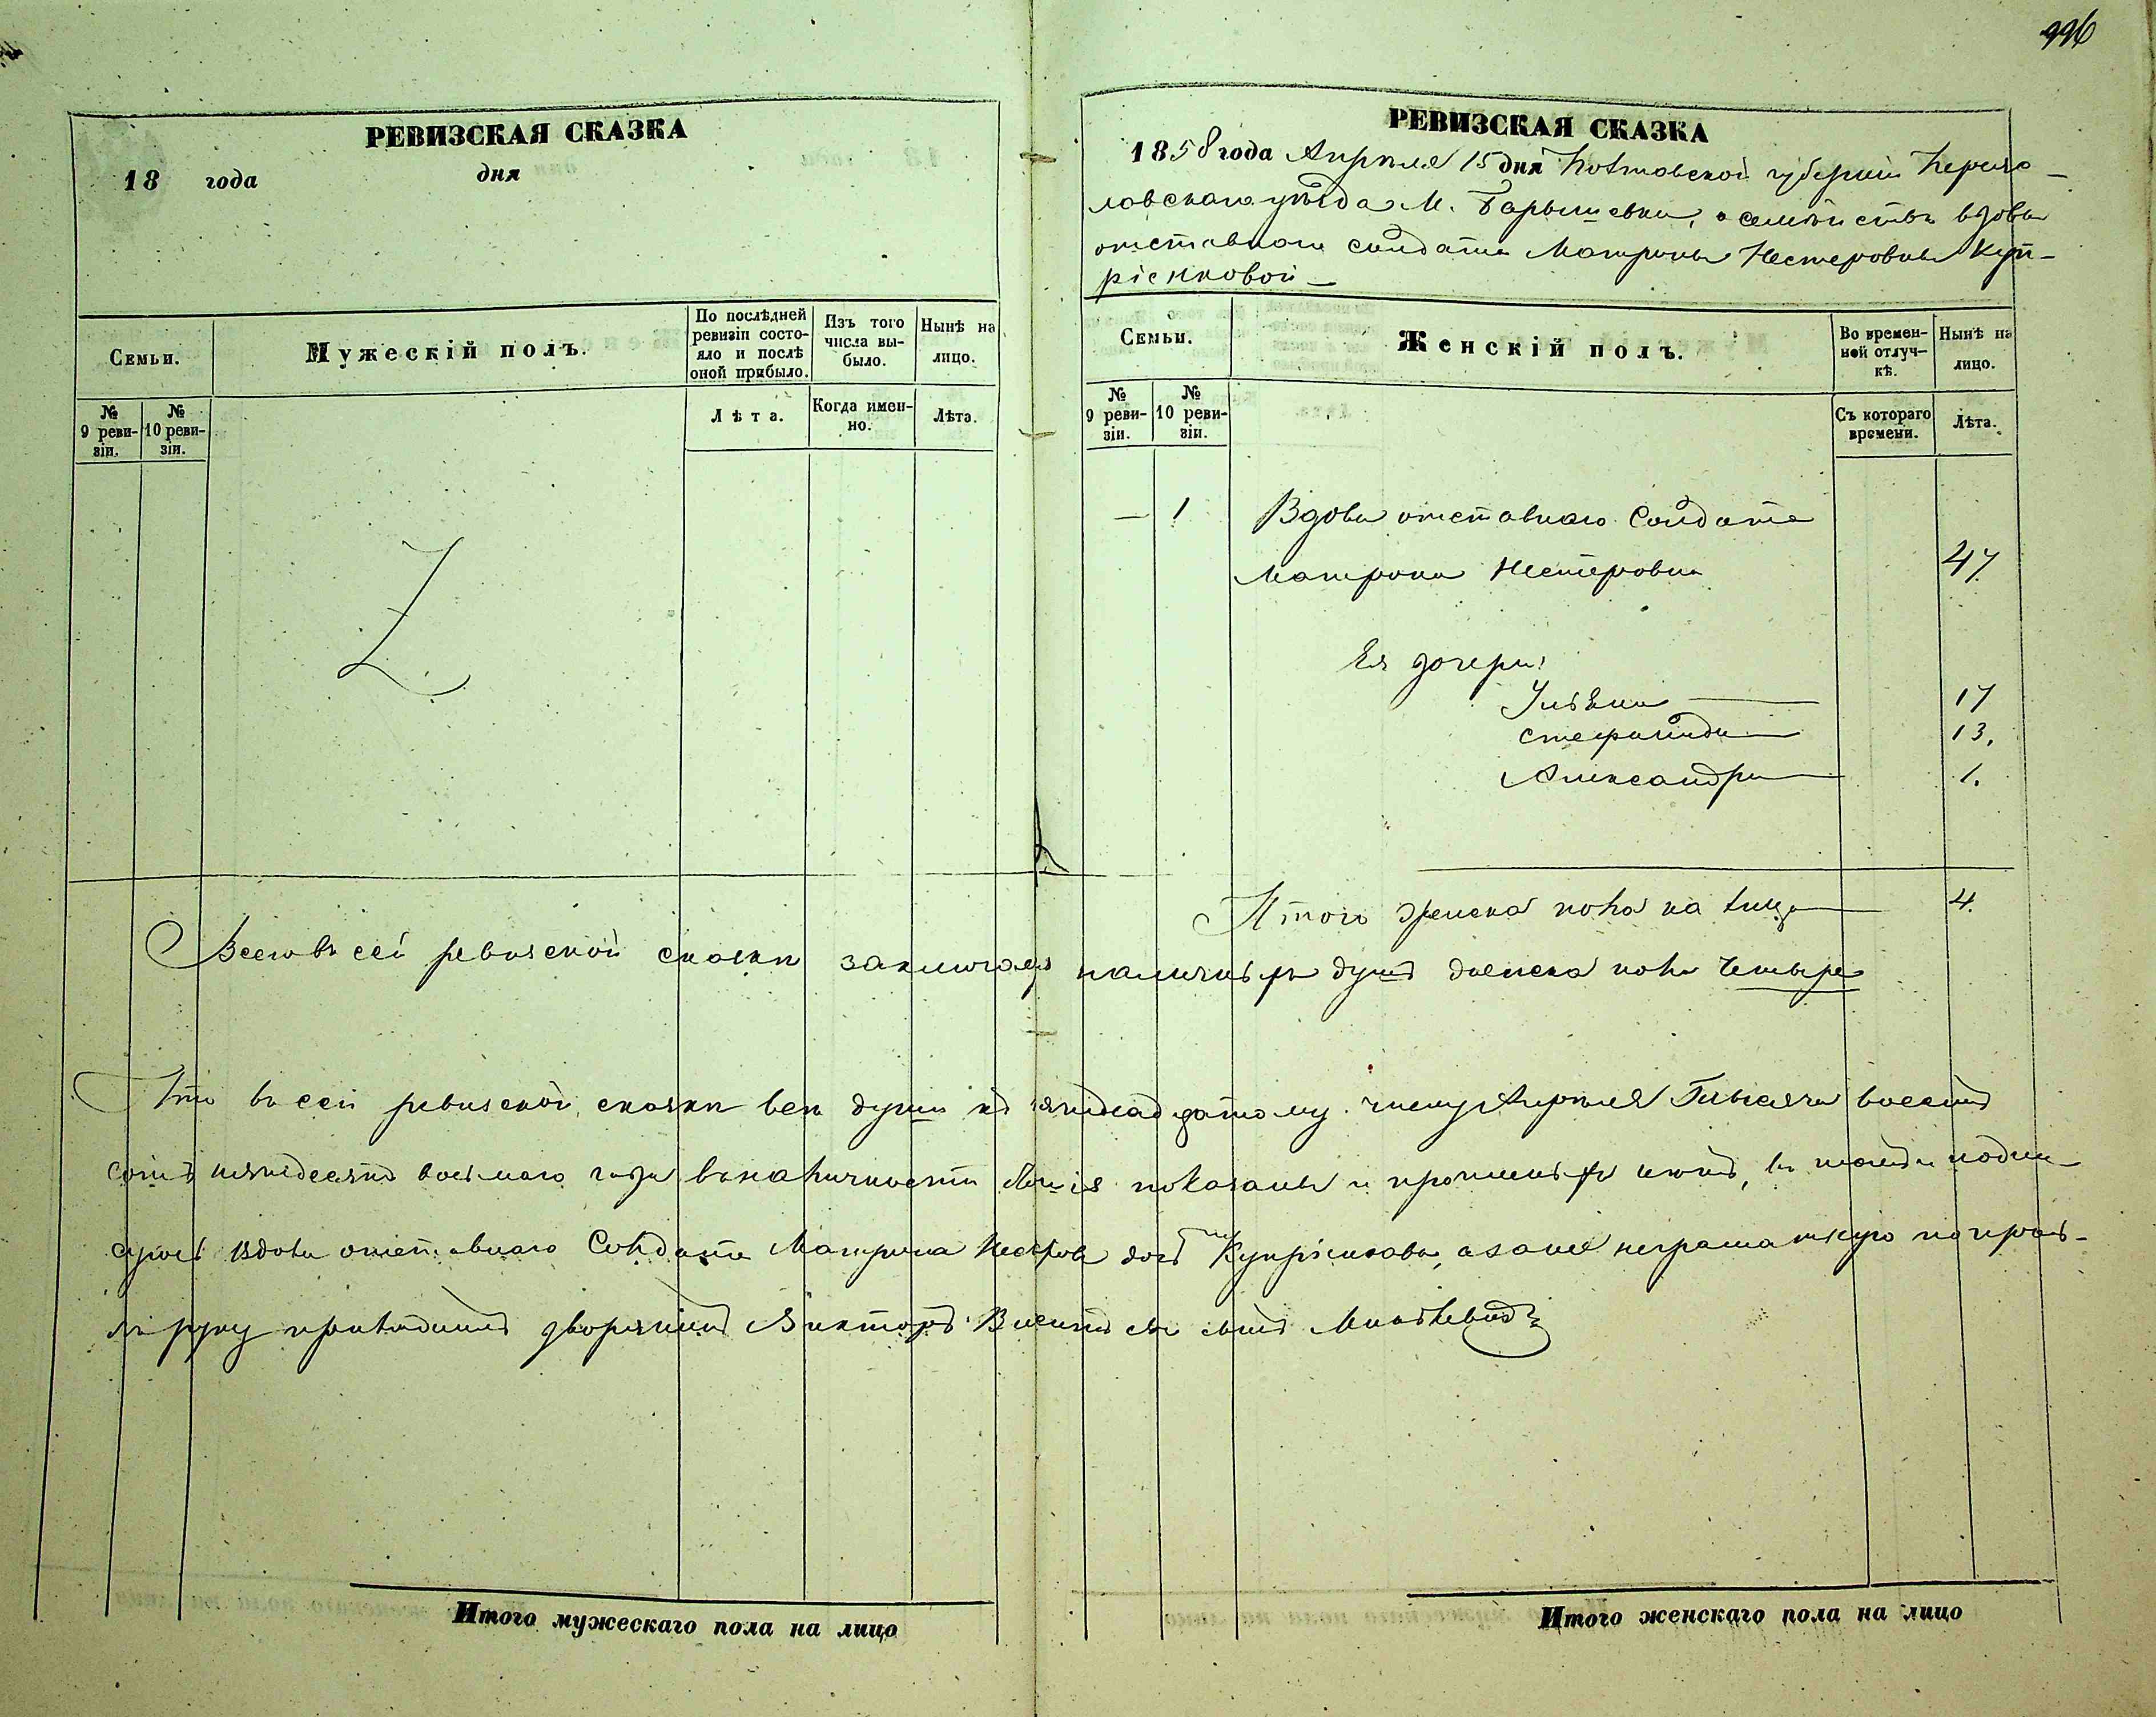 996
РЕВИЗСКАЯ СКАЗКА
18 года дня
Семьи.
Мужескій полъ.
По послѣдней ревизіи состояло и послѣ оной прибыло.
Изъ того числа выбыло.
Нынѣ на лицо.
№ 9 ревизіи.
№ 10 ревизіи.
Лѣта.
Когда именно.
Лѣта.
РЕВИЗСКАЯ СКАЗКА
1858 года Апрѣля 15 дня Полтавской губерніи Переяс-
лавскаго уѣзда М. Барышевки, о семействѣ вдовы
отставнаго солдата Матроны Нестеровны Куп-
ріенковой
Семьи.
Женскій полъ.
Во временной отлучкѣ.
Нынѣ на лицо.
№ 9 ревизіи.
№ 10 ревизіи.
Съ котораго времени.
Лѣта.
— 1 Вдова отставнаго Солдата
Матрона Нестеровна 47
Ея дочери:
Ульяна 17
Стефанида 13.
Александра 1.
Итого женска пола на лицо 4.
Всего въ сей ревизской сказкѣ заключается наличныхъ душъ женска пола Четыре
Что въ сей ревизской сказкѣ всѣ души къ пятнадцатому числу Апрѣля Тысяча восемь
сотъ пятьдесятъ восьмаго года въ наличности показаны и пропускъ нѣтъ, въ томъ и подпи-
суюсь Вдова отставнаго Солдата Матрона Нестерова дочь Купріенкова, а за нее неграматную по прозь-
бѣ руку приложилъ дворянинъ Викторъ сынъ
Итого мужескаго пола на лицо
Итого женскаго пола на лицо